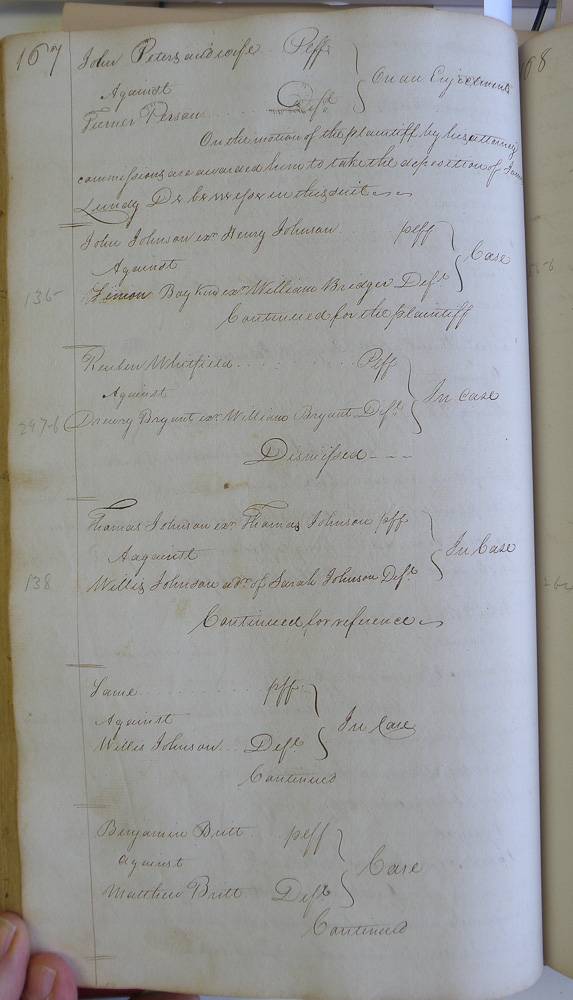 167
John Peters and wife Peff
Against
Turner Person Deft
On an Enjoctment
On the motion of the plaintiff by his attorney
commissions are awarded him to take the deposition of
Lundy in this suit
John Johnson exr Henry Johnson peff
Against
Case
136
Simon Boykin exr William Bridger Deft
Continued for the plaintiff
Reuben Whitfield Peff
Against
In Case
297-6
Drewry Bryant exr William Bryant Deft
Dismissed
Thomas Johnson exr Thomas Johnson pff
Aagainst
In Case
138
Willis Johnson adr of Sarah Johnson Deft
Continued for reference
Same pff
Against
In Case
Willis Johnson Deft
Continued
Benjamin Britt peff
against
Case
Matthew Britt Deft
Continued